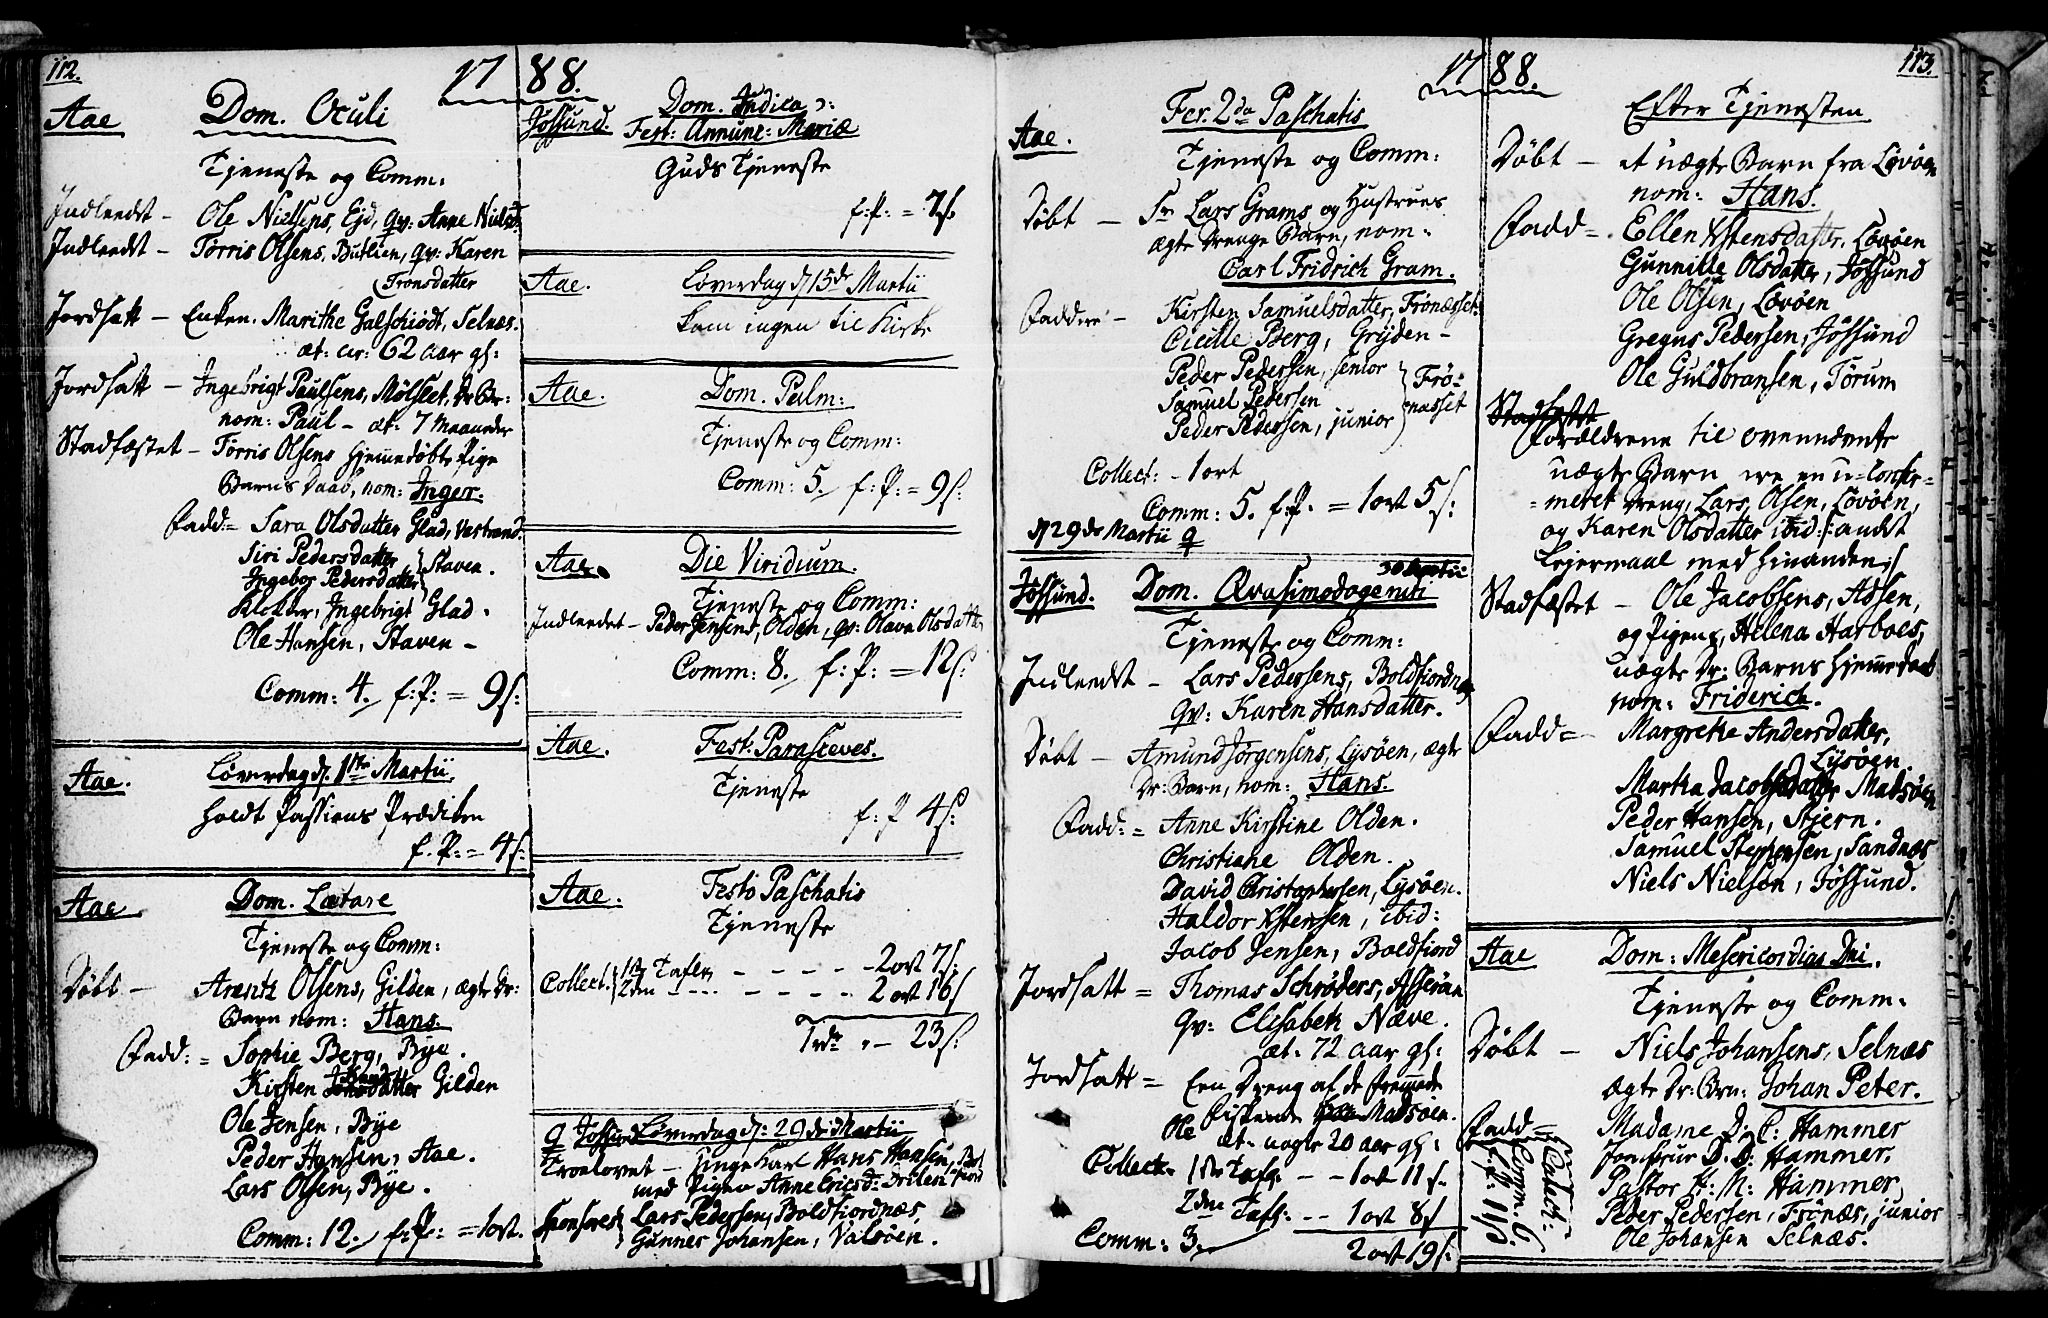 112.
1788.
Aae
Dom. Oculi
Tjeneste og Comm:
Indleedt - Ole Nielsens, Ejd, qv: Anne Nielsd:
Indleedt - Tørris Olsens, Butlien, qv: Karen
Tronsdatter
Jordsatt - Enken Marithe Galschiødt, Selnæs.
æt: cir: 62 aar gl:
Jordsatt - Ingebrigt Paulsens, Mølslet, Dr. Br:
nom: Paul - æt: 7 Maaneder
Stadfæstet - Tørris Olsens hjemmedøbte Pige
Barns Daab, nom: Inger.
Fadd = Sara Olsdatter Glad, Vestrand.
Siri Pedersdatter } Staven.
Ingebor Pedersdatter
Klokker, Ingebrigt Glad.
Ole Hansen, Staven -
Comm: 4. f: P: = 9 s:
Aae.
Løverdag d. 1ste Martii.
holdt Passions Prædiken
f. P: = 4 s:
Aae
Dom. Lætare
Tjeneste og Comm:
Døbt - Arentz Olsens, Gilden, ægte Dr:
Barn nom: Hans.
Fadd: = Sophie Berg, Bye.
Kirsten datter Gilden
Ole Jensen, Bye
Peder Hansen, Aae.
Lars Olsen, Bye.
Comm: 12. f: P: = 1 ort.
Jøssund.
Dom. Judica ɔ:
Fest: Annunc: Mariæ
Guds Tjeneste
f: P: = 7 s.
Aae.
Løverdag d. 15de Martii
kom ingen til Kirke
Aae.
Dom. Palm:
Tjeneste og Comm:
Comm: 5. f: P: = 9 s:
Aae.
Die Viridium.
Tjeneste og Comm:
Indleedet - Peder Jensens, Olden, qv: Olava Olsdatter
Comm: 8. f: P: = 12 s:
Aae.
Fest: Parasceves.
Tjeneste
f: P 4 s:
Aae.
Festo Paschatis
Tjeneste
Collect. 1te Tafle - - - - - 2 ort 7 s.
2den - - - - - 2 ort 16 s
1 rdr " - 23 s:
Jøssund Løverdag d: 29de Martii
Troelovet - Ungekarl Hans Hansen,
med Pigen Anne Ericsd:
Sponsores } Lars Pedersen, Boldfiordnæs,
Gunnes Johansen, Valsøen.
1788.
113.
Aae.
Fer. 2da Paschatis
Tjeneste og Comm:
Døbt - Sr. Lars Grams og Hustrues
ægte Drenge Barn, nom:
Carl Fridrich Gram.
Faddere - Kirsten Samuelsdatter, Frønæsset.
Cicille Berg, Gryden -
Peder Pedersen, senior } Frø-
Samuel Pedersen } næsset
Peder Pedersen, junior
Collect: - 1 ort
Comm: 5. f. P. = 1 ort 5 s:
d. 29de Martii
Jøssund.
30 Martii
Dom. Qvasimodogeniti
Tjeneste og Comm:
Indleedt - Lars Pedersens, Boldfiordnæs
qv: Karen Hansdatter.
Døbt - Amund Jørgensens, Lysøen, ægte
Dr: Barn, nom: Hans.
Fadd: = Anne Kirstine Olden.
Christiane Olden.
David Christophersen, Lysøen.
Haldor Østensen, ibid:
Jacob Jensen, Boldfiord
Jordsatt = Thomas Schrøders, Asserøen
qv: Elisabeth Næve.
æt: 72 aar gl:
Jordsatt = Een Dreng af de fremmede
Fiskende Madsøen.
Ole æt: nogle 20 aar gl:
Collect. 1ste Tafl: - - 1 ort 11 s.
2dne Tafl: - - 1 ort 8 s
Comm: 3. 2 ort 19 s:
Efter Tjenesten
Døbt - et uægte Barn fra Løvøen
nom: Hans.
Fadd = Ellen Østensdatter, Løvøen
Gunnille Olsdatter, Jøssund
Ole Olsen, Løvøen
Gregus Pedersen, Jøssund
Ole Guldbransen, Tørum
Stadfæstet
Forældrene til ovennævnte
uægte Barn ere en u-Confir-
meret Dreng, Lars Olsen, Løvøen,
og Karen Olsdatter ibid: andet
Lejermaal med hinanden
Stadfæstet - Ole Jacobsens, Assen,
og Pigens, Helena Harboes,
uægte Dr: Barns hjemmedaab
nom: Friderich.
Fadd = Margrethe Andersdatter,
Lysøen.
Martha Jacobsdatter Madsøen
Peder Hansen, Stjern.
Samuel Steffensen, Sandnæs
Niels Nielsen, Jøssund.
Aae
Dom: Misericordias Dni.
Tjeneste og Comm:
Døbt - Niels Johansens, Selnæs
ægte Dr: Brn: Johan Peter.
Fadd = Madame D: C: Hammer
Jomfrue D. D: Hammer,
Pastor H: N: Hammer
Peder Pedersen, Frønæs, junior
Ole Johansen Selnæs.
Comm: 6.
f. P: 11 s.